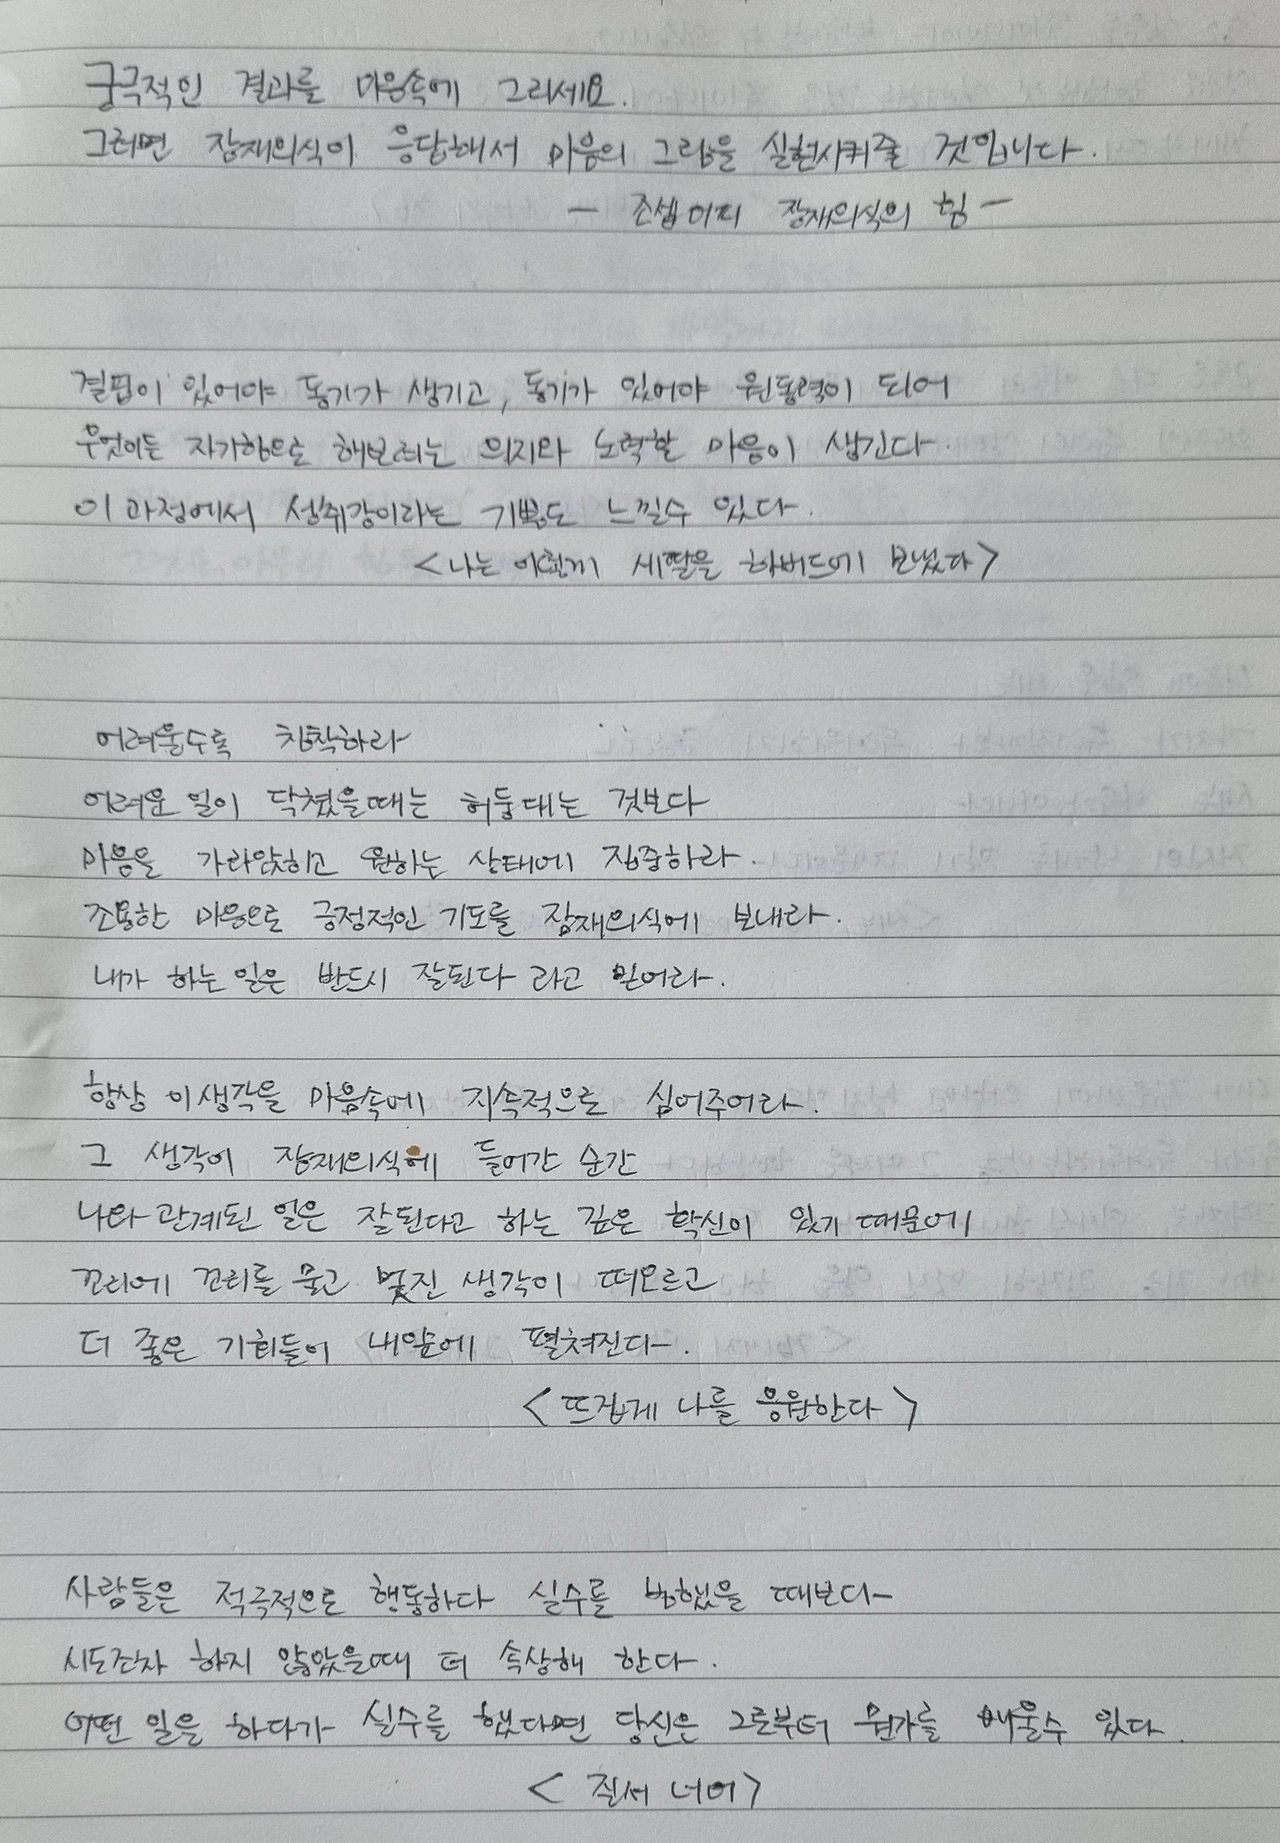 궁극적인 결과를 마음속에 그리세요.
그러면 잠재의식이 응답해서 마음의 그림을 실현시켜줄 것입니다.
- 조셉머피 잠재의식의 힘 -
결핍이 있어야 동기가 생기고, 동기가 있어야 원동력이 되어
무엇이든 자기힘으로 해보려는 의지와 노력할 마음이 생긴다.
이 과정에서 성취감이라는 기쁨도 느낄수 있다.
<나는 이렇게 세딸을 하버드에 보냈다>
어려울수록 침착하라
어려운 일이 닥쳤을때는 허둥대는 것보다
마음을 가라앉히고 원하는 상태에 집중하라.
조용한 마음으로 긍정적인 기도를 잠재의식에 보내라.
내가 하는 일은 반드시 잘된다 라고 믿어라.
항상 이생각을 마음속에 지속적으로 심어주어라.
그 생각이 잠재의식에 들어간 순간
나와 관계된 일은 잘된다고 하는 깊은 확신이 있기 때문에
꼬리에 꼬리를 물고 멋진 생각이 떠오르고
더 좋은 기회들이 내앞에 펼쳐진다.
<뜨겁게 나를 응원한다>
사람들은 적극적으로 행동하다 실수를 범했을 때보다
시도조차 하지 않았을때 더 속상해 한다.
어떤 일을 하다가 실수를 했다면 당신은 그로부터 뭔가를 배울수 있다.
<진서 너어>